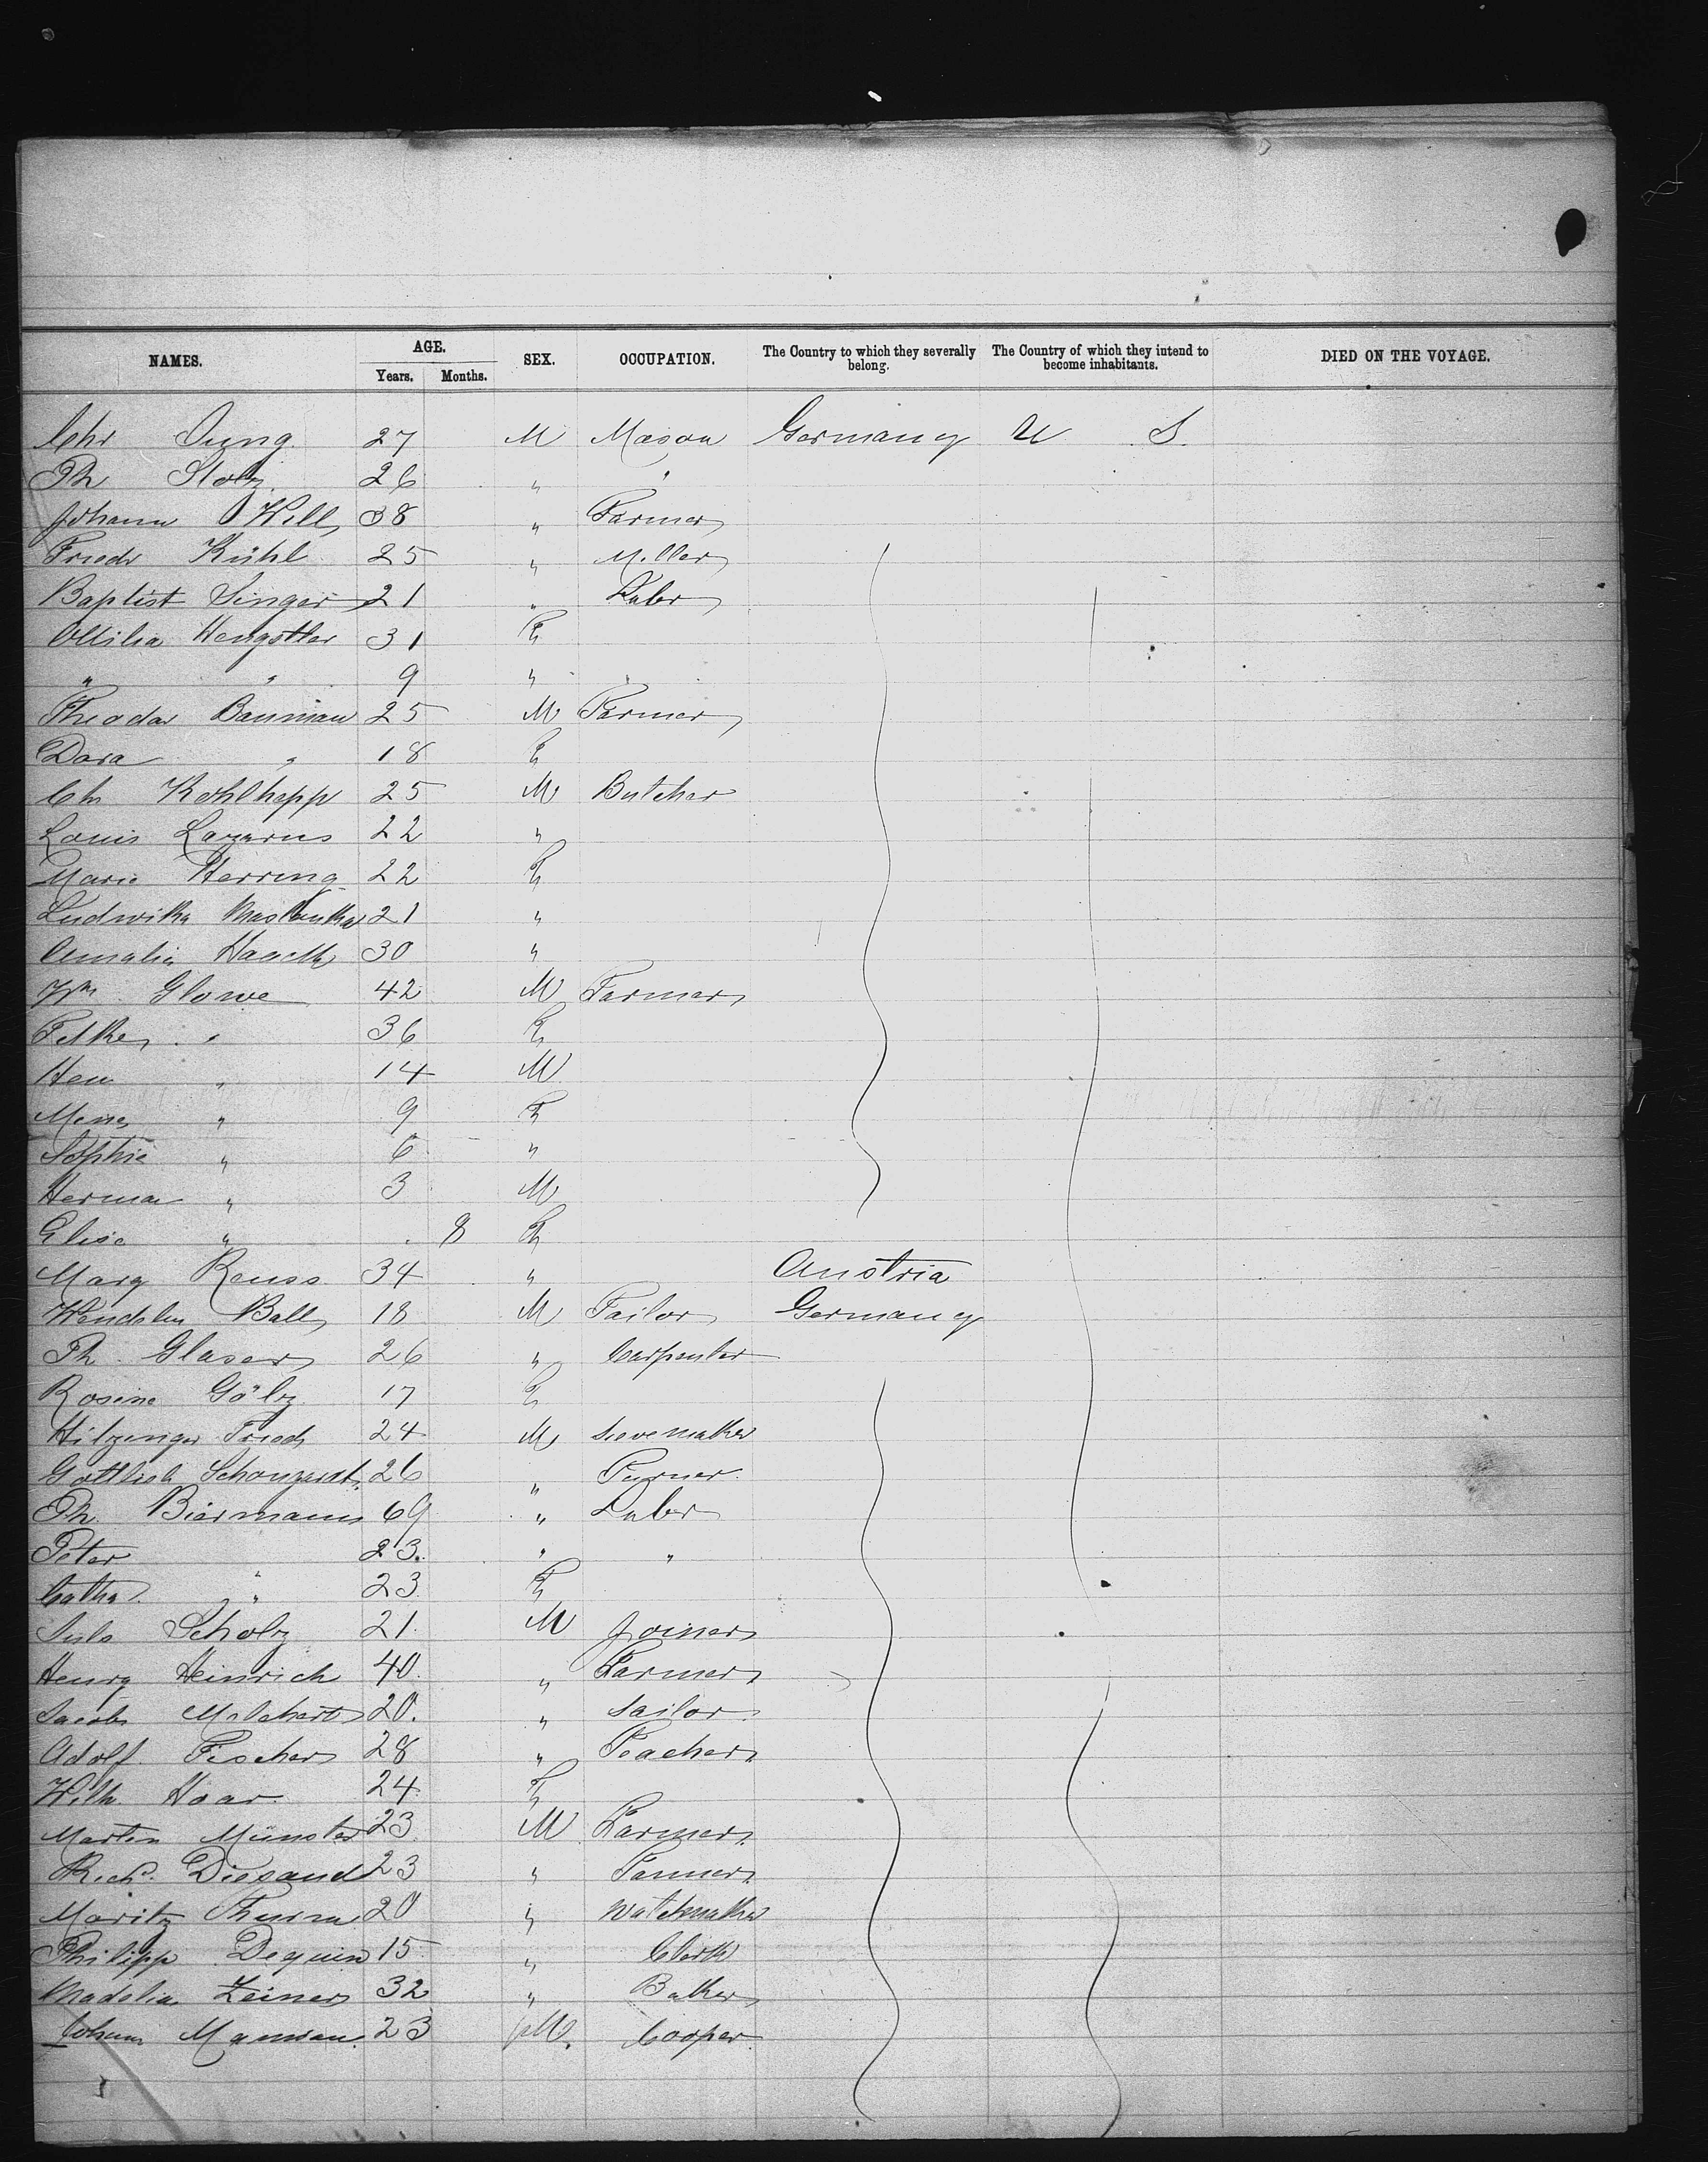 NAMES. AGE. SEX. OCCUPATION. The Country to which they severally belong. The Country of which they intend to become inhabitants. DIED ON THE VOYAGE.
Years. Months.
Chr Jung 27 M Mason Germany U S.
Ph Stolz 26 " "
Johann Will 38 " Farmer
Friedr Kühl 25 " Miller
Baptist Singer 21 " Labr
Ottilia Hengstler 31 F
" " 9 " "
Theodor Bauman 25 M Farmer
Dora " 18 F
Chr Kohlhepp 25 M Butcher
Louis Lazarus 22 "
Marie Herring 22 F
Ludwika Maslanka 21 "
Amalia Haack 30 "
Wm Glowe 42 M Farmer
" 36 F
Hen " 14 M
" 9 F
Sophie " 6 "
Herman " 3 M
Elise " 8 F
Marg Reuss 34 " Austria
Wendelin Ball 18 M Tailor Germany
Ph. Glaser 26 " Carpenter
Rosine Gölz 17 F
Hilzinger Friedr 24 M Sievemaker
Gottlieb 26 " Turner
Ph. Biermann 69 " Labr
Peter " 23. " "
Catha. " 23 F
Scholz 21. M Joiner
Henry Heinrich 40. " Farmer
Jacob Melchert 20. " Sailor
Adolf Fischer 28 " Teacher
Wilh. Haar 24. F
Martin Münster 23 M Farmer
Richd. Diesand 23 " Tanner
Moritz Thurm 20 " Watchmaker
Philipp Dequin 15 " Clerk
Zeiner 32 " Baker
Johann 23 M. Cooper